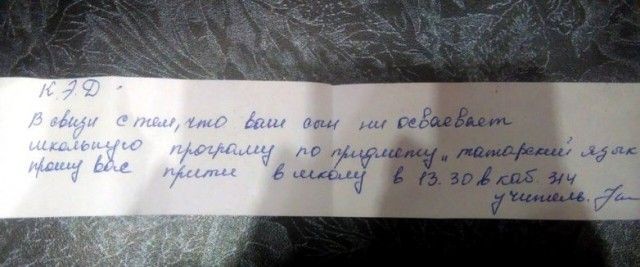 К.Э.Д.
В свизи с тем, что ваш сын ни осваевает
школьную програму по придмету "татарский язык
прошу вас прити в школу в 13.30 в каб. 314
учитель.